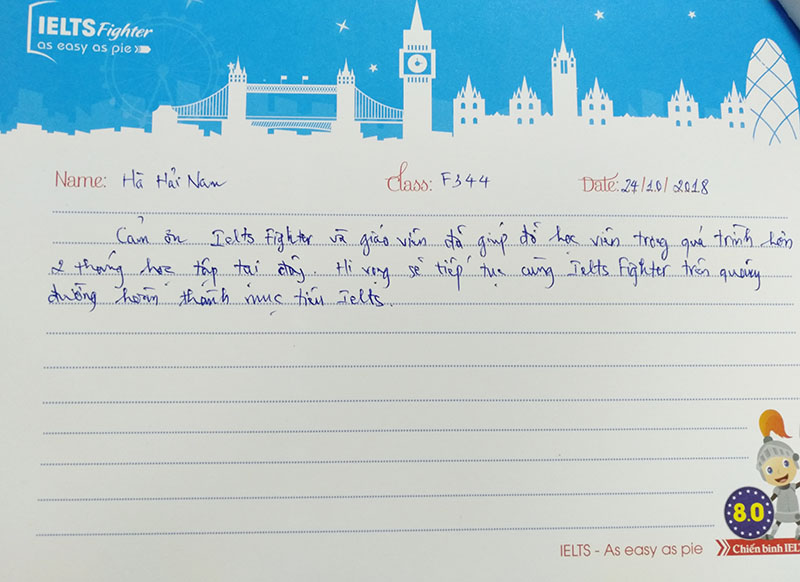 IELTS Fighter
as easy as pie
Name: Hà Hải Nam Class: F344 Date: 24/10/2018
Cảm ơn Ielts Fighter và giáo viên đã giúp đỡ học viên trong quá trình hơn
2 tháng học tập tại đây. Hi vọng sẽ tiếp tục cùng Ielts Fighter trên quãng
đường hoàn thành mục tiêu Ielts.
8.0
IELTS - As easy as pie
Chiến binh IEL